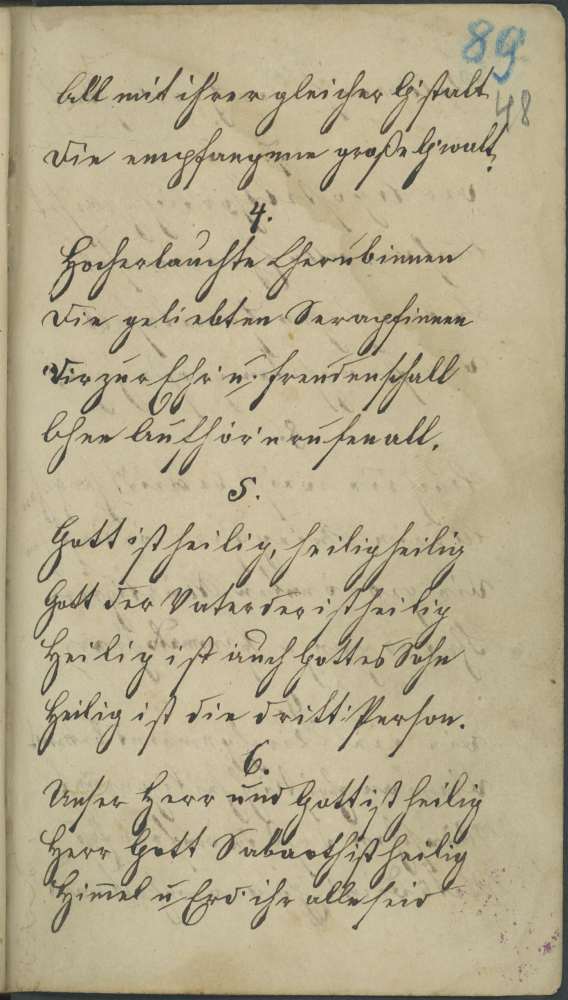 89
48
All mit ihrer gleicher Gstalt
Die empfangene große Gwalt.
4.
Hocherlauchte Cherubinnen
Die geliebten Seraphinnen
Dir zur Ehr u. Freudenschall
Ohne Aufhör'n rufen all.
5.
Gott ist heilig, heilig heilig
Gott der Vater der ist heilig
Heilig ist auch Gottes Sohn
Heilig ist die dritt Person.
6.
Unser Herr und Gott ist heilig
Herr Gott Sabaoth ist heilig
Himmel u Erd ihr alle seid